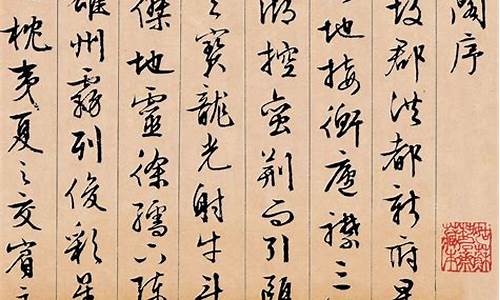 閣序
故郡洪都新府星
地接衡廬襟三
湖控蛮荆而引甌
之寶龍光射牛斗
傑地靈徐孺下陳
雄州霧列俊彩星
枕夷夏之交賓主